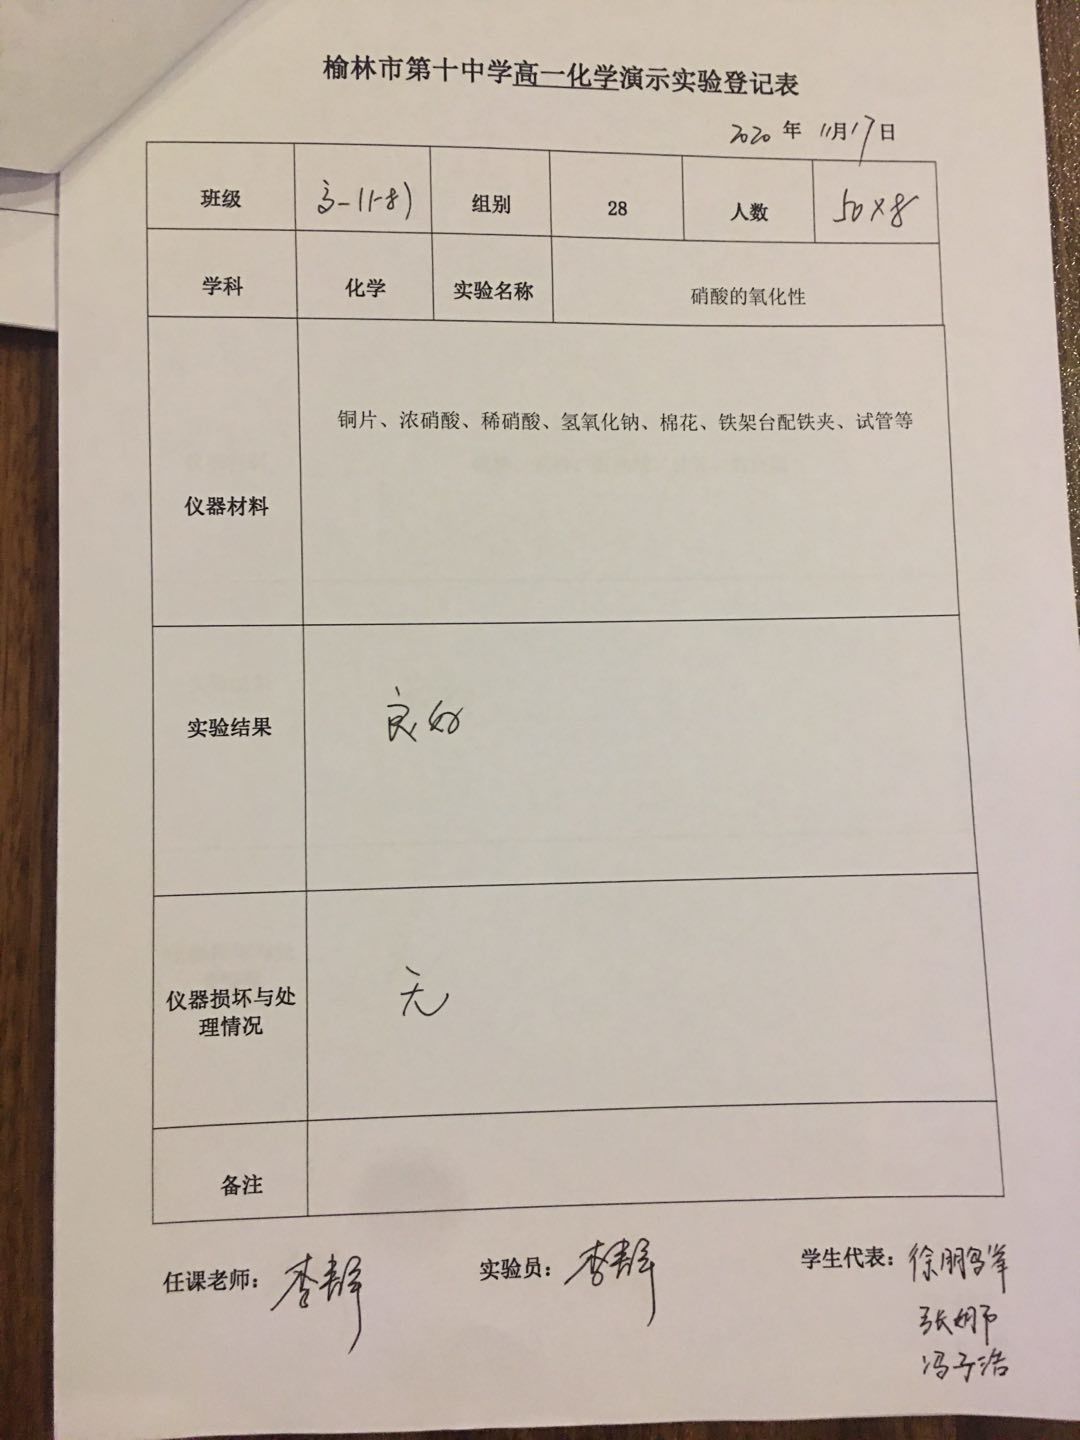 榆林市第十中学高一化学演示实验登记表
2020 年 11月17日
班级 高一(1-8) 组别 28 人数 50×8
学科 化学 实验名称 硝酸的氧化性
铜片、浓硝酸、稀硝酸、氢氧化钠、棉花、铁架台配铁夹、试管等
仪器材料
实验结果 良好
仪器损坏与处
理情况
无
备注
任课老师： 实验员： 学生代表：
冯子浩